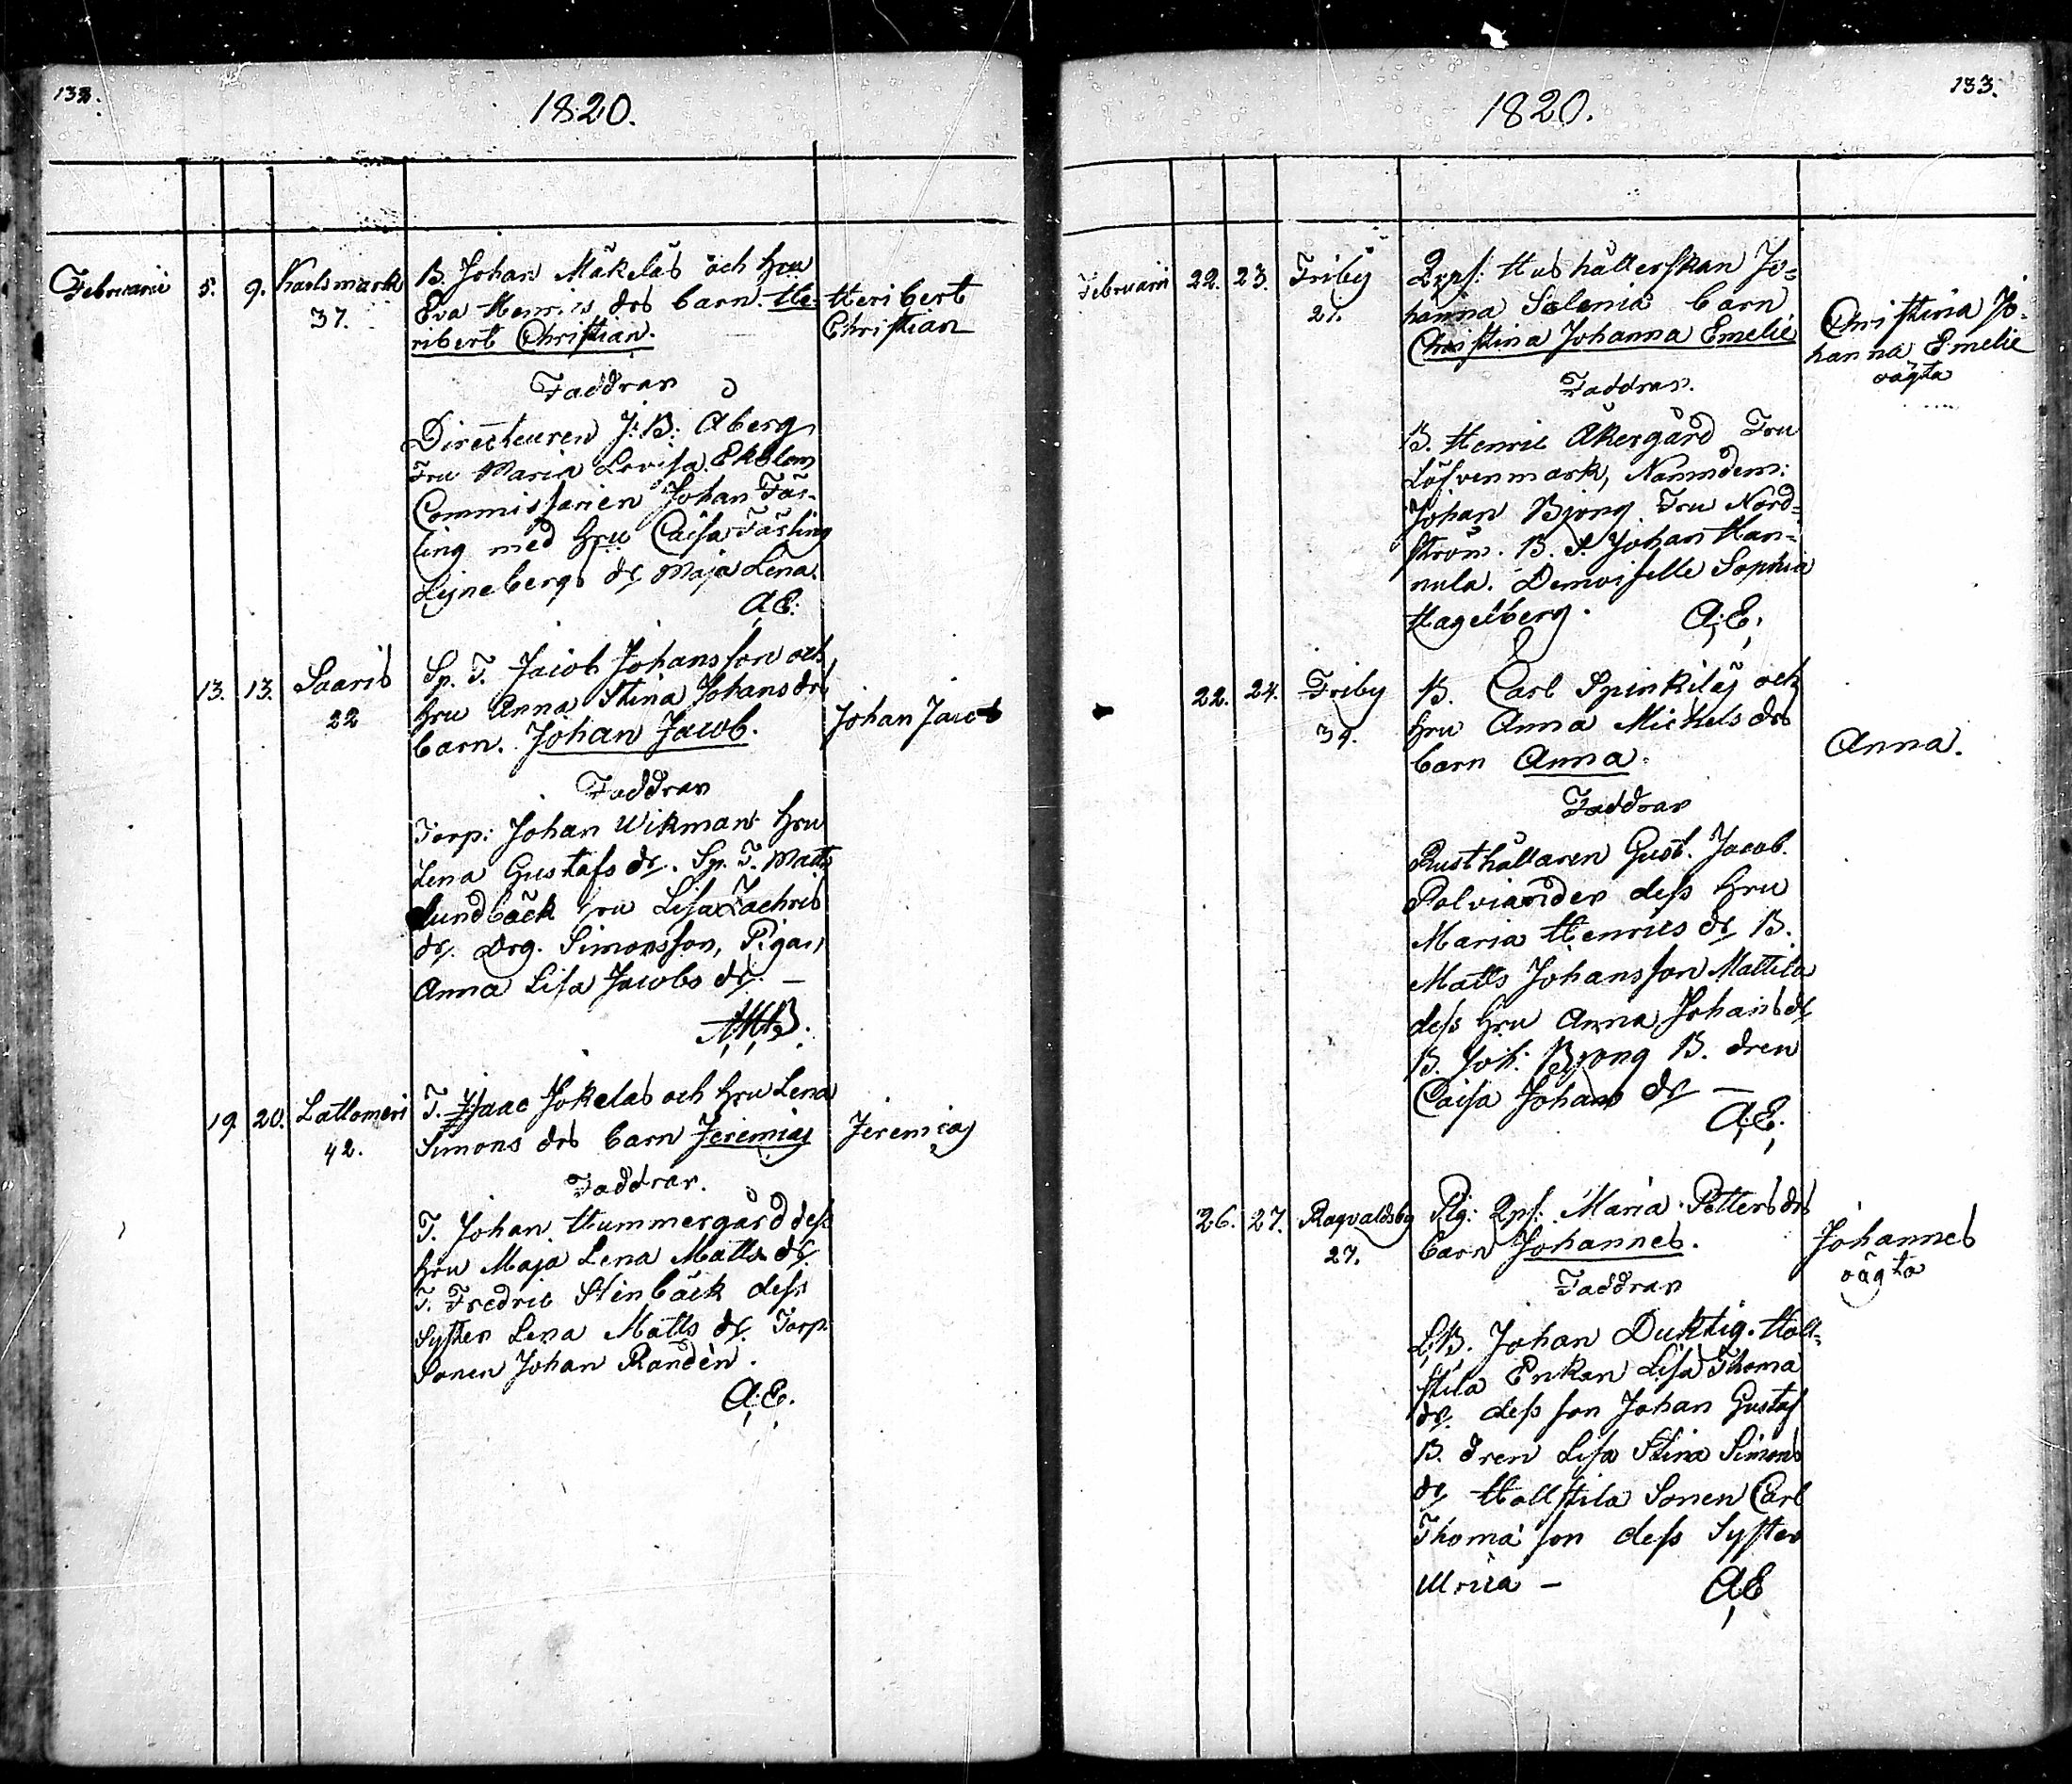 132.
1820.
Februarii 5. 9. Karlsmark
37.
B. Johan Mäkeläs och hru
Eva Henrics drs barn. He-
ribert Christian.
Heribert
Christian
Faddrar
Directeuren J: B: Åberg
Fru Maria Lovisa Ekblom
Commissarien Johan Täs-
ling med hru Caisa Täsling
Lijnebergs dr Maja Lena.
A:E:
13. 13. Saaris
22
Sp. T. Jacob Johansson och
hru Anna Stina Johans drs
barn. Johan Jacob.
Johan Jacob
Faddrar
Torp: Johan Wikman hru
Lena Gustafs dr. Sp. T. Matts
Lundbäck hru Lisa Zachris
dr. Drg. Simonsson, Pigan
Anna Lisa Jacobs dr. —
19. 20. Lattomeri
42.
T. Isaac Jokelas och hru Lena
Simons drs barn Jeremias
Jeremias
Faddrar.
T. Johan Hummergård dess
hru Maja Lena Matts dr.
T. Fredric Stenbäck dess
Syster Lena Matts dr. Torp.
Sonen Johan Randèn.
A:E.
133.
1820.
Februarii 22. 23. Friby
21.
Qvps: Hushållerskan Jo-
hanna Selenia barn
Christina Johanna Emelie
Christina Jo-
hanna Emelie
oägta
Faddrar.
B. Henric Åkergård Fru
Löfvenmark, Nämndem:
Johan Bjong Fru Nord-
ström. B. S. Johan Han-
nula. Demoiselle Sophia
Hagelberg.
A:E:
22. 24. Friby
39.
B. Carl Spinkiläs och
hru Anna Mickels drs
barn Anna.
Anna.
Faddrar
Rusthållaren Gust. Jacob.
Polviander dess hru
Maria Henrics dr B.
Matts Johansson Mattila
dess hru Anna Johans dr
B. Joh: Bjong B. dren
Caisa Johans dr —
A:E.
26. 27. Ragvaldsby
27.
Pig: Qps: Maria Petters drs
barn Johannes.
Johannes
oägta
Faddrar
L;B. Johan Duktig. Holl-
stila Enkan Lisa Thoma
dr. dess son Johan Gustaf
B. dren Lisa Stina Simons
dr Hollstila Sonen Carl
Thoma son dess Syster
Ulrica —
A:E